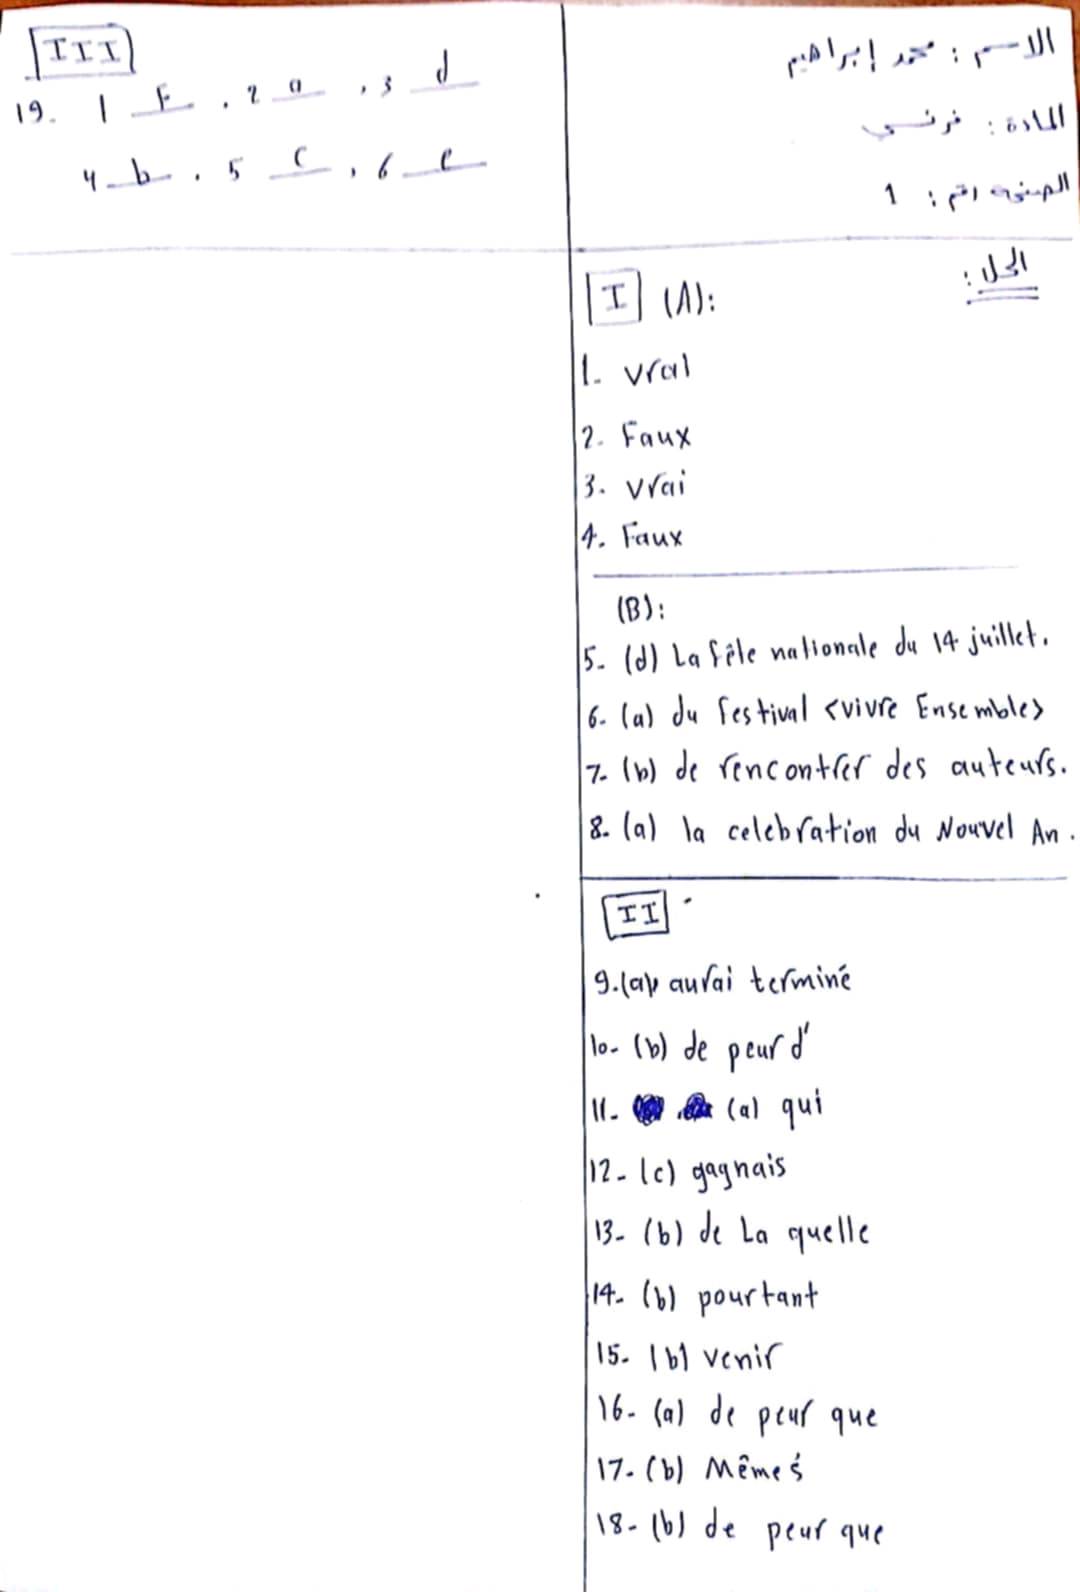 الاسم : محمد إبراهيم
المادة : فرنسي
الصفحة رقم : 1
الحل :
I (A):
1. vral
2. Faux
3. vrai
4. Faux
(B):
5. (d) La fêle nationale du 14 juillet.
6. (a) du festival <vivre Ensemble>
7. (b) de rencontrer des auteurs.
8. (a) la celebration du Nouvel An.
II
9. (a) aurai terminé
10- (b) de peur d'
11- (a) qui
12- (c) gagnais
13- (b) de La quelle
14- (b) pourtant
15- (b) venir
16- (a) de peur que
17- (b) Mêmes
18- (b) de peur que
III
19. 1 F . 2 a , 3 d
4 b . 5 c , 6 e